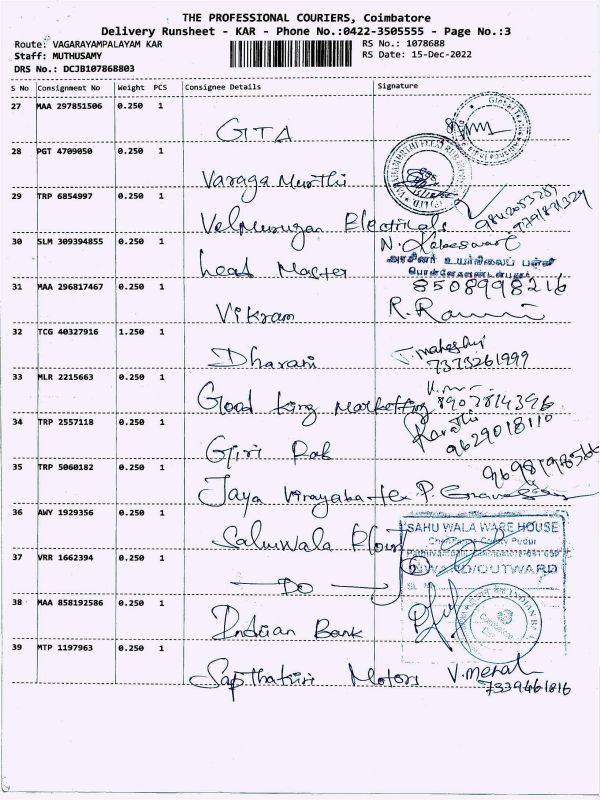 THE PROFESSIONAL COURIERS, Coimbatore
Delivery Runsheet - KAR - Phone No.:0422-3505555 - Page No.:3
Route: VAGARAYAMPALAYAM KAR RS No.: 1078688
Staff: MUTHUSAMY RS Date: 15-Dec-2022
DRS No.: DCJB107868803
S No Consignment No Weight PCS Consignee Details Signature
27 MAA 297851506 0.250 1
GTA
28 PGT 4709050 0.250 1
Varaga Murthi
29 TRP 6854997 0.250 1
Velmurugan Electricals
30 SLM 309394855 0.250 1
Head Master
அரசினர் உயர்நிலைப் பள்ளி
31 MAA 296817467 0.250 1
8508998216
Vikram R.
32 TCG 40327916 1.250 1
Dharani
7373261999
33 MLR 2215663 0.250 1
Good King Marketting 8907814396
34 TRP 2557118 0.250 1
9629018110
Giri Pak
35 TRP 5060182 0.250 1
Jaya
36 AWY 1929356 0.250 1
SAHU WALA WARE HOUSE
Sahuwala Flour
37 VRR 1662394 0.250 1
INWARD/OUTWARD
DO
38 MAA 858192586 0.250 1
Indian Bank
39 MTP 1197963 0.250 1
Sapthagiri Motors
7339461816